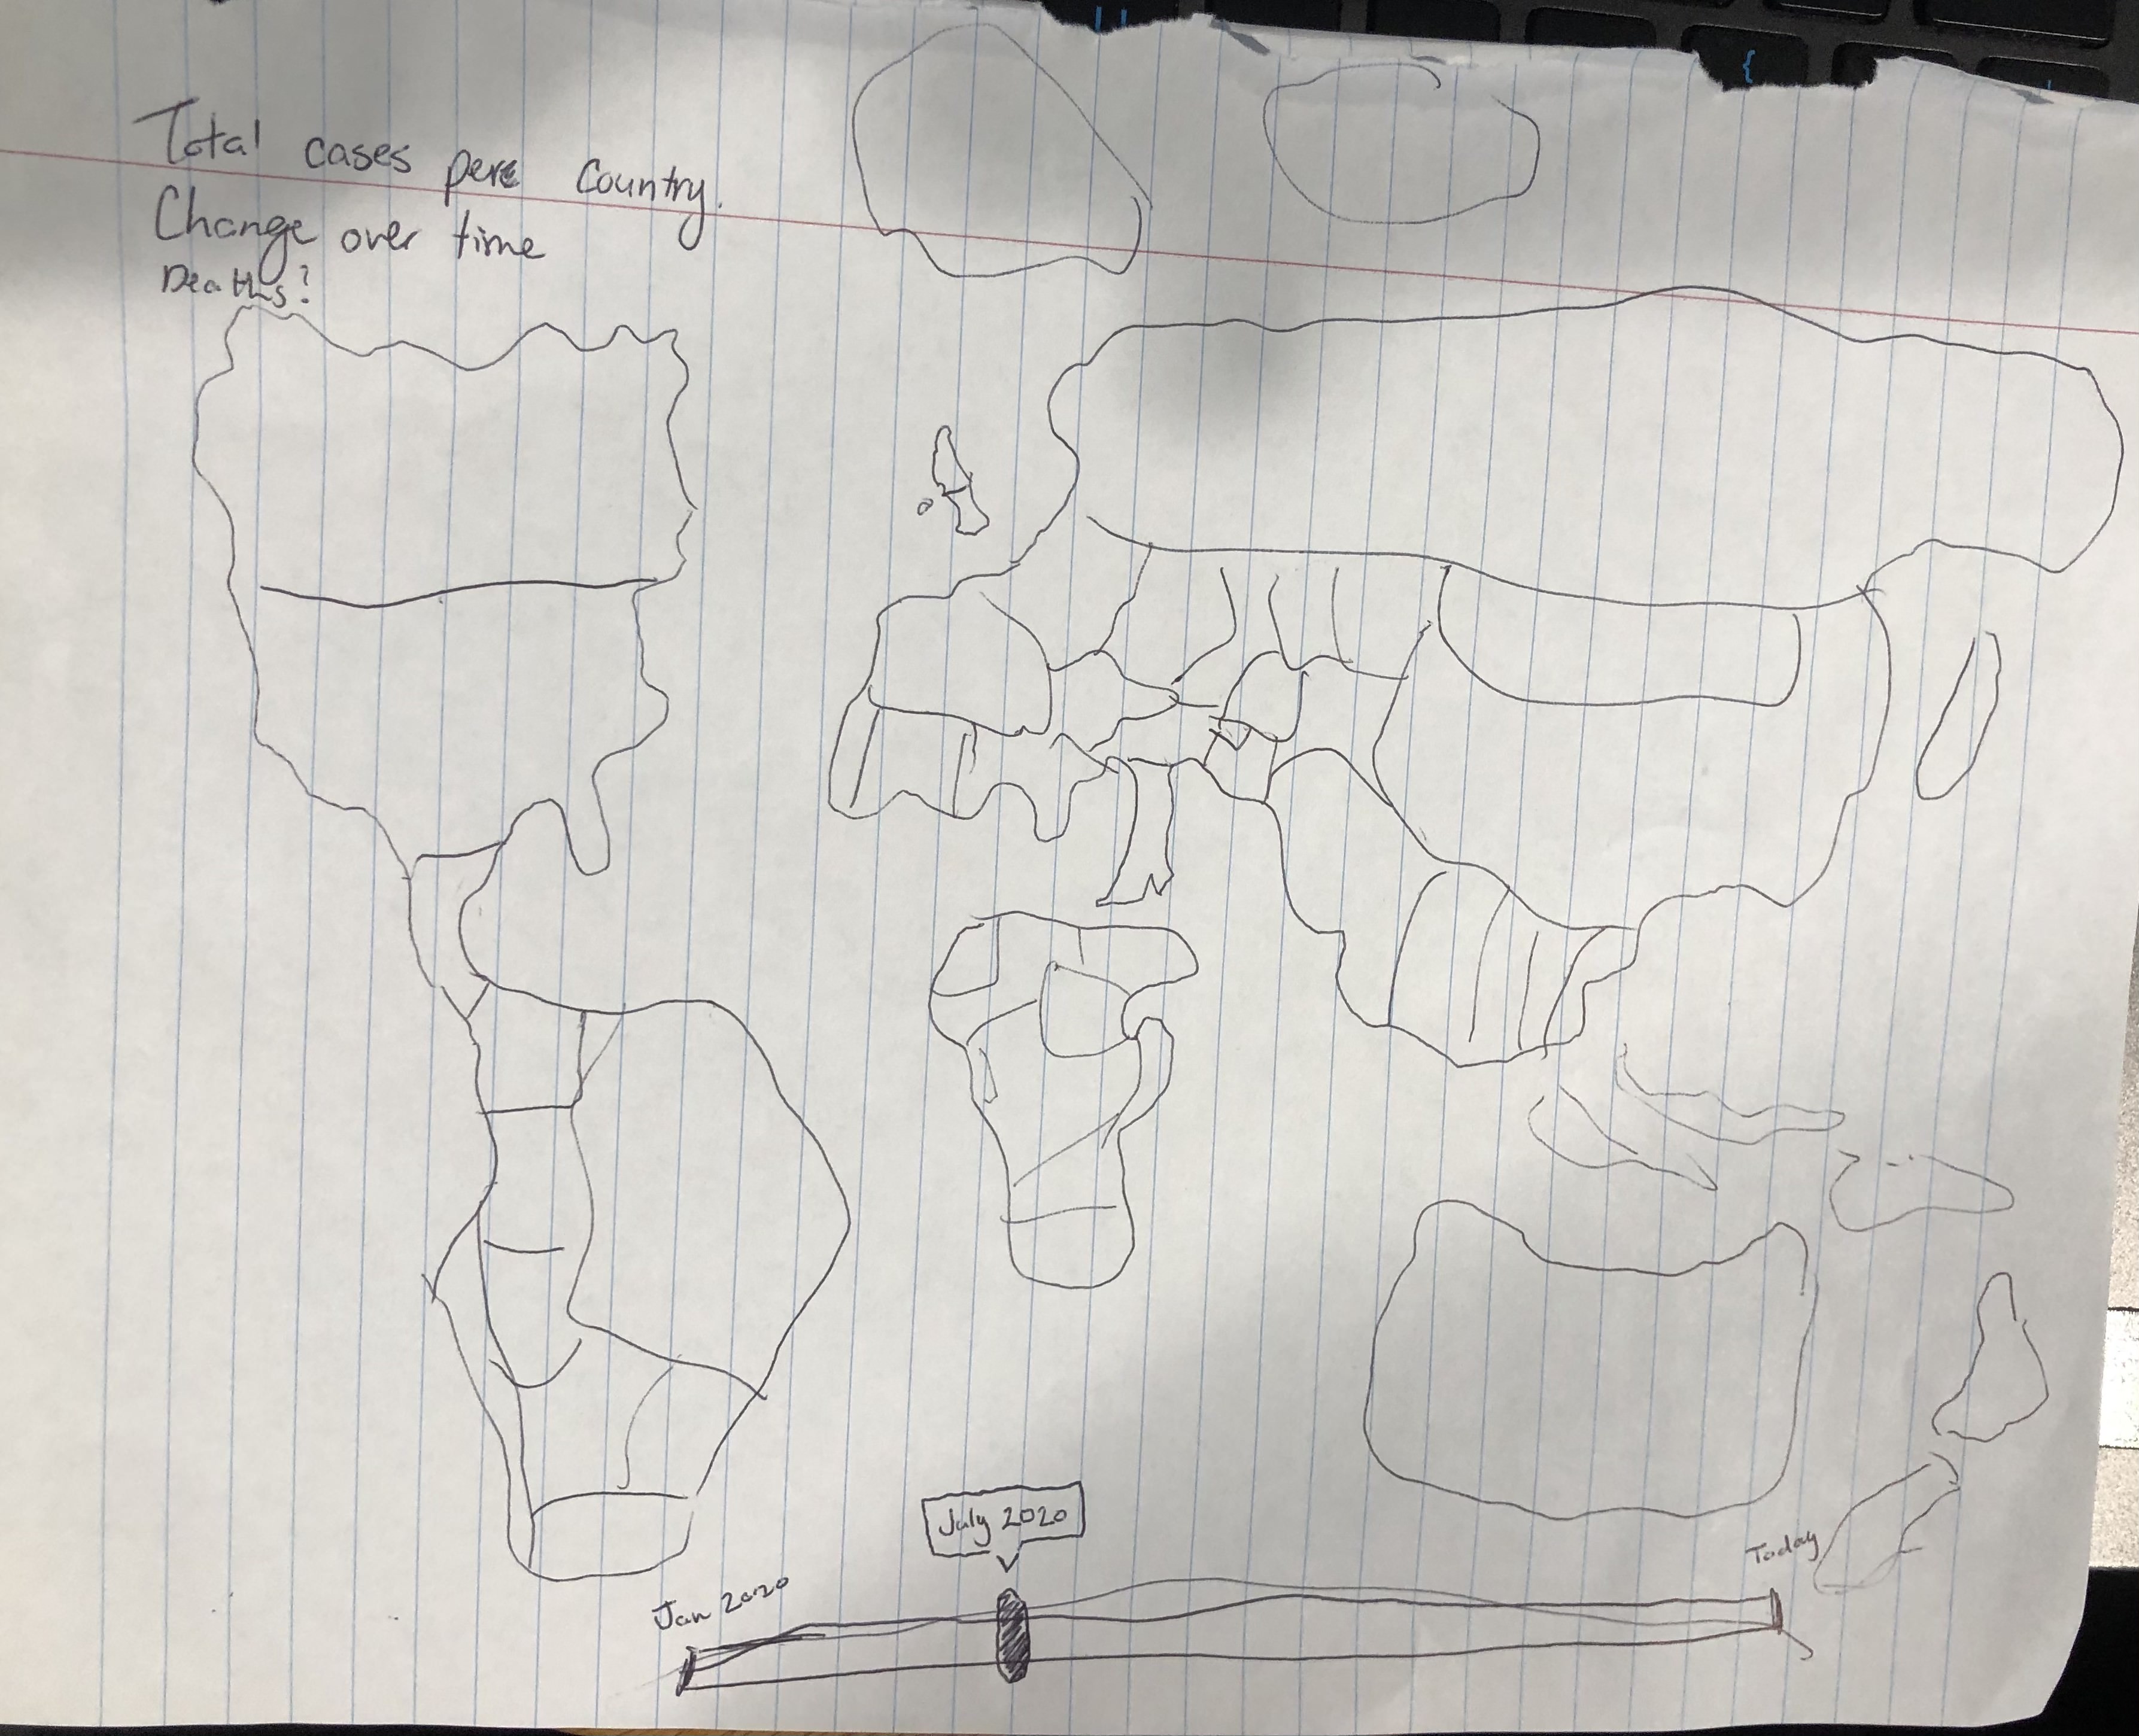 Total cases per country.
Change over time
Deaths?
July 2020
Today
Jan 2020
{